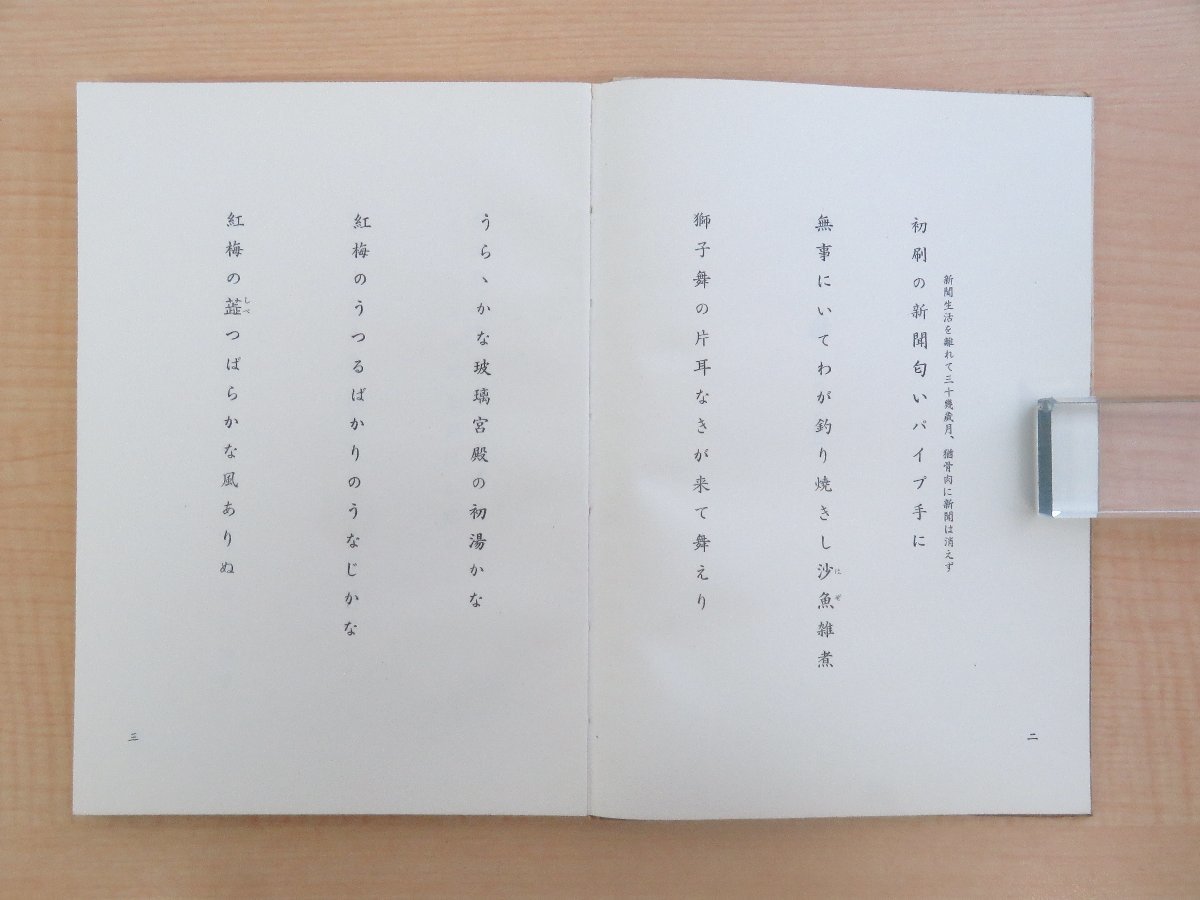 新聞生活を離れて三十幾歳月、猶骨肉に新聞は消えず
初刷の新聞匂いパイプ手に
無事にいてわが釣り焼きし沙魚雑煮
はぜ
獅子舞の片耳なきが来て舞えり
二
うらゝかな玻璃宮殿の初湯かな
紅梅のうつるばかりのうなじかな
紅梅の蕋つばらかな風ありぬ
しべ
三